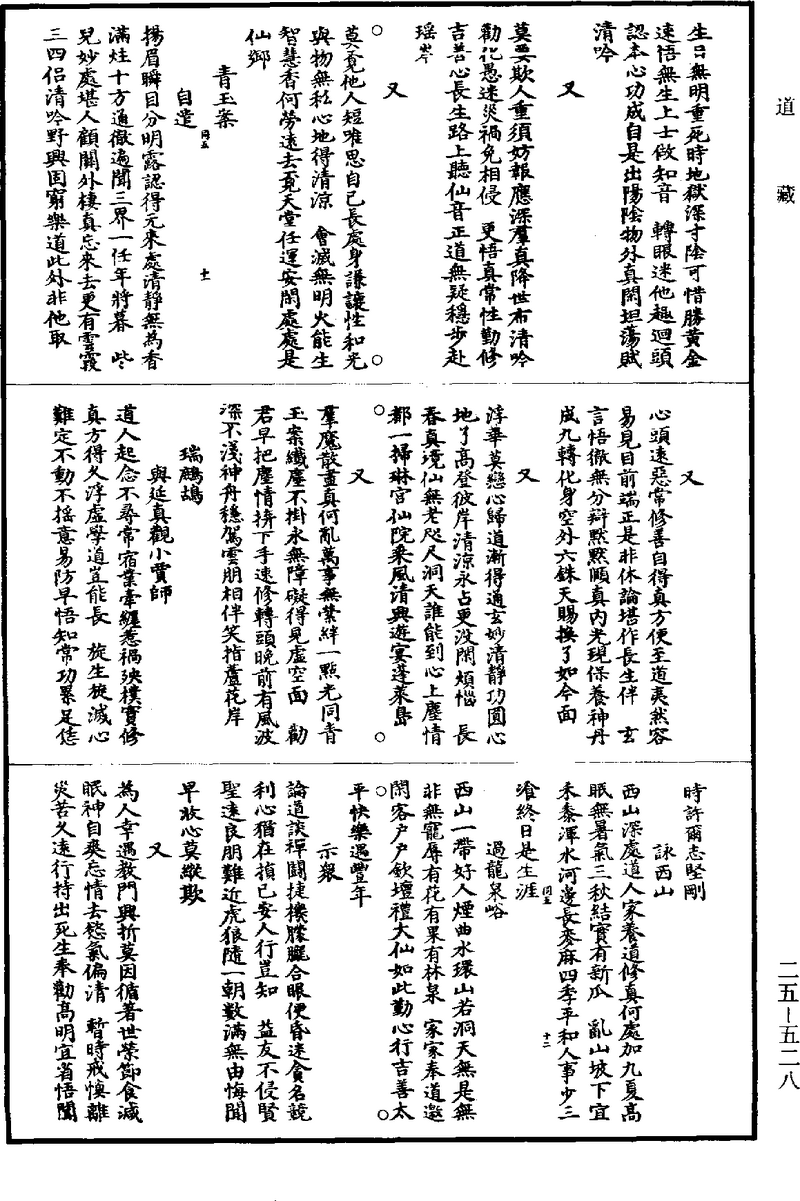 道藏
生日無明重死時地獄深寸陰可惜勝黃金
速悟無生上士做知音　轉眼迷他趣迴頭
認本心功成自是出陽陰物外真閑坦蕩賦
清吟
又
莫要欺人重須妨報應深羣真降世布清吟
勸化愚迷災禍免相侵　更悟真常性勤修
吉善心長生路上聽仙音正道無疑穩步赴
瑶岑
又
莫覓他人短唯思自己長處身謙讓性和光
與物無私心地得清涼　會滅無明火能生
智慧香何勞遠去覓天堂任運安閑處處是
仙鄉
青玉案
自遣
同五
十一
揚眉瞬目分明露認得元來處清靜無為香
滿炷十方通徹遍聞三界一任年將暮　些些
兒妙處堪人顧關外棲真忘來去更有雲霞
三四侶清吟野興固窮樂道此外非他取
又
心頭遠惡常修善自得真方便至道夷然容
易見目前端正是非休論堪作長生伴　玄
言悟徹無分辯默默頤真內光現保養神丹
成九轉化身空外六銖天賜換了如今面
又
浮華莫戀心歸道漸得通玄妙清靜功圓心
地了高登彼岸清涼永占更没閑煩惱　長
春真境仙無老咫尺洞天誰能到心上塵情
都一掃琳宮仙院乘風清興遊宴蓬萊島
又
羣魔散盡真何亂萬事無縈絆一點光同青
玉案纖塵不掛永無障礙得見虛空面　勸
君早把塵情拚下手速修轉頭晚前有風波
深不淺神舟穩駕雲朋相伴笑指蘆花岸
瑞鷓鴣
與延真觀小賈師
道人起念不尋常宿業牽纏惹禍殃樸實修
真方得久浮虛學道豈能長　旋生旋滅心
難定不動不搖意易防早悟知常功累足恁
時許爾志堅剛
詠西山
西山深處道人家養道修真何處加九夏高
眠無暑氣三秋結實有新瓜　亂山坡下宜
禾黍渾水河邊長麥麻四季平和人事少三
飡終日是生涯
同五
十二
過龍泉峪
西山一帶好人煙曲水環山若洞天無是無
非無寵辱有花有果有林泉　家家奉道邀
閑客戶戶欽壇禮大仙如此勤心行吉善太
平快樂遇豐年
示衆
論道談禪鬬捷機朦朧合眼便昏迷貪名競
利心猶在損己安人行豈知　益友不侵賢
聖遠良朋難近虎狼隨一朝數滿無由悔聞
早收心莫縱欺
又
為人幸遇教門興折莫因循著世榮節食減
眠神自爽忘情去慾氣偏清　暫時戒懊離
災苦久遠行持出死生奉勸高明宜省悟聞
二五—五二八